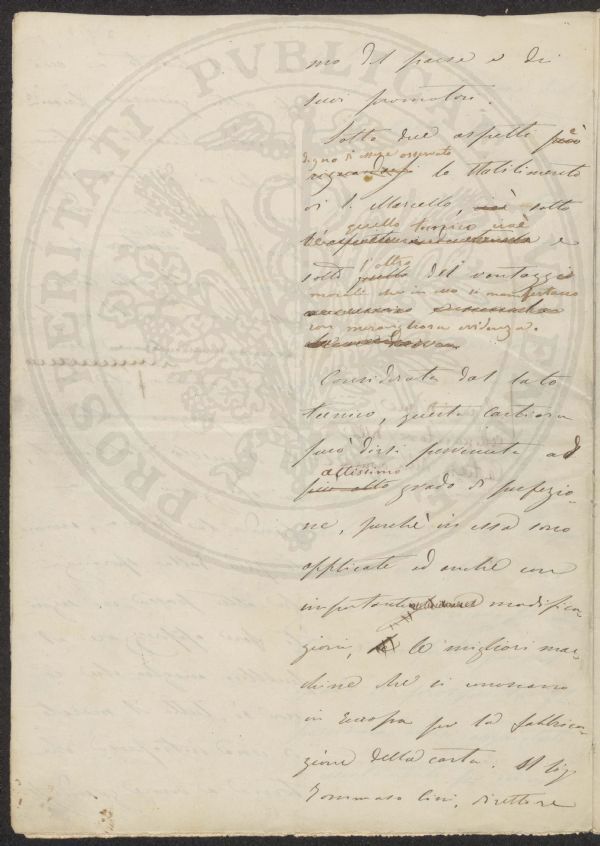 PROSPERITATI PUBLICAE AUGENDAE
mo del paese e di
suoi promotori.
Sotto due aspetti è
degno di essere osservato
lo Stabilimento
di S. Marcello, sotto
quello tecnico cioè
e
sotto l'altro dei vantaggi
morali che in esso si manifestano
con meravigliosa evidenza.
Considerata dal lato
tecnico, questa cartiera
può dirsi pervenuta ad
altissimo
più alto grado di perfezio-
ne, perchè in essa sono
applicate ed anche con
importanti modifica-
zioni, le migliori mac-
chine che si conoscano
in Europa per la fabbrica-
zione della carta. Il Sig.
Tommaso Cini, direttore